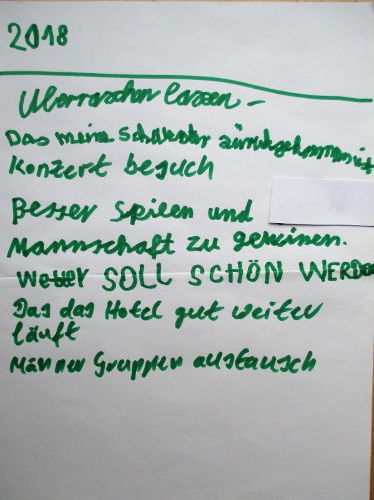 2018
Überraschn lassen -
Das meine Schwester zürückgekommen ist
Konzert besuch
Besser Spielen und
Mannschaft zu gewinnen.
Weter SOLL SCHÖN WERDEN
Das das Hotel gut weiter
läuft
Männer Gruppen austausch